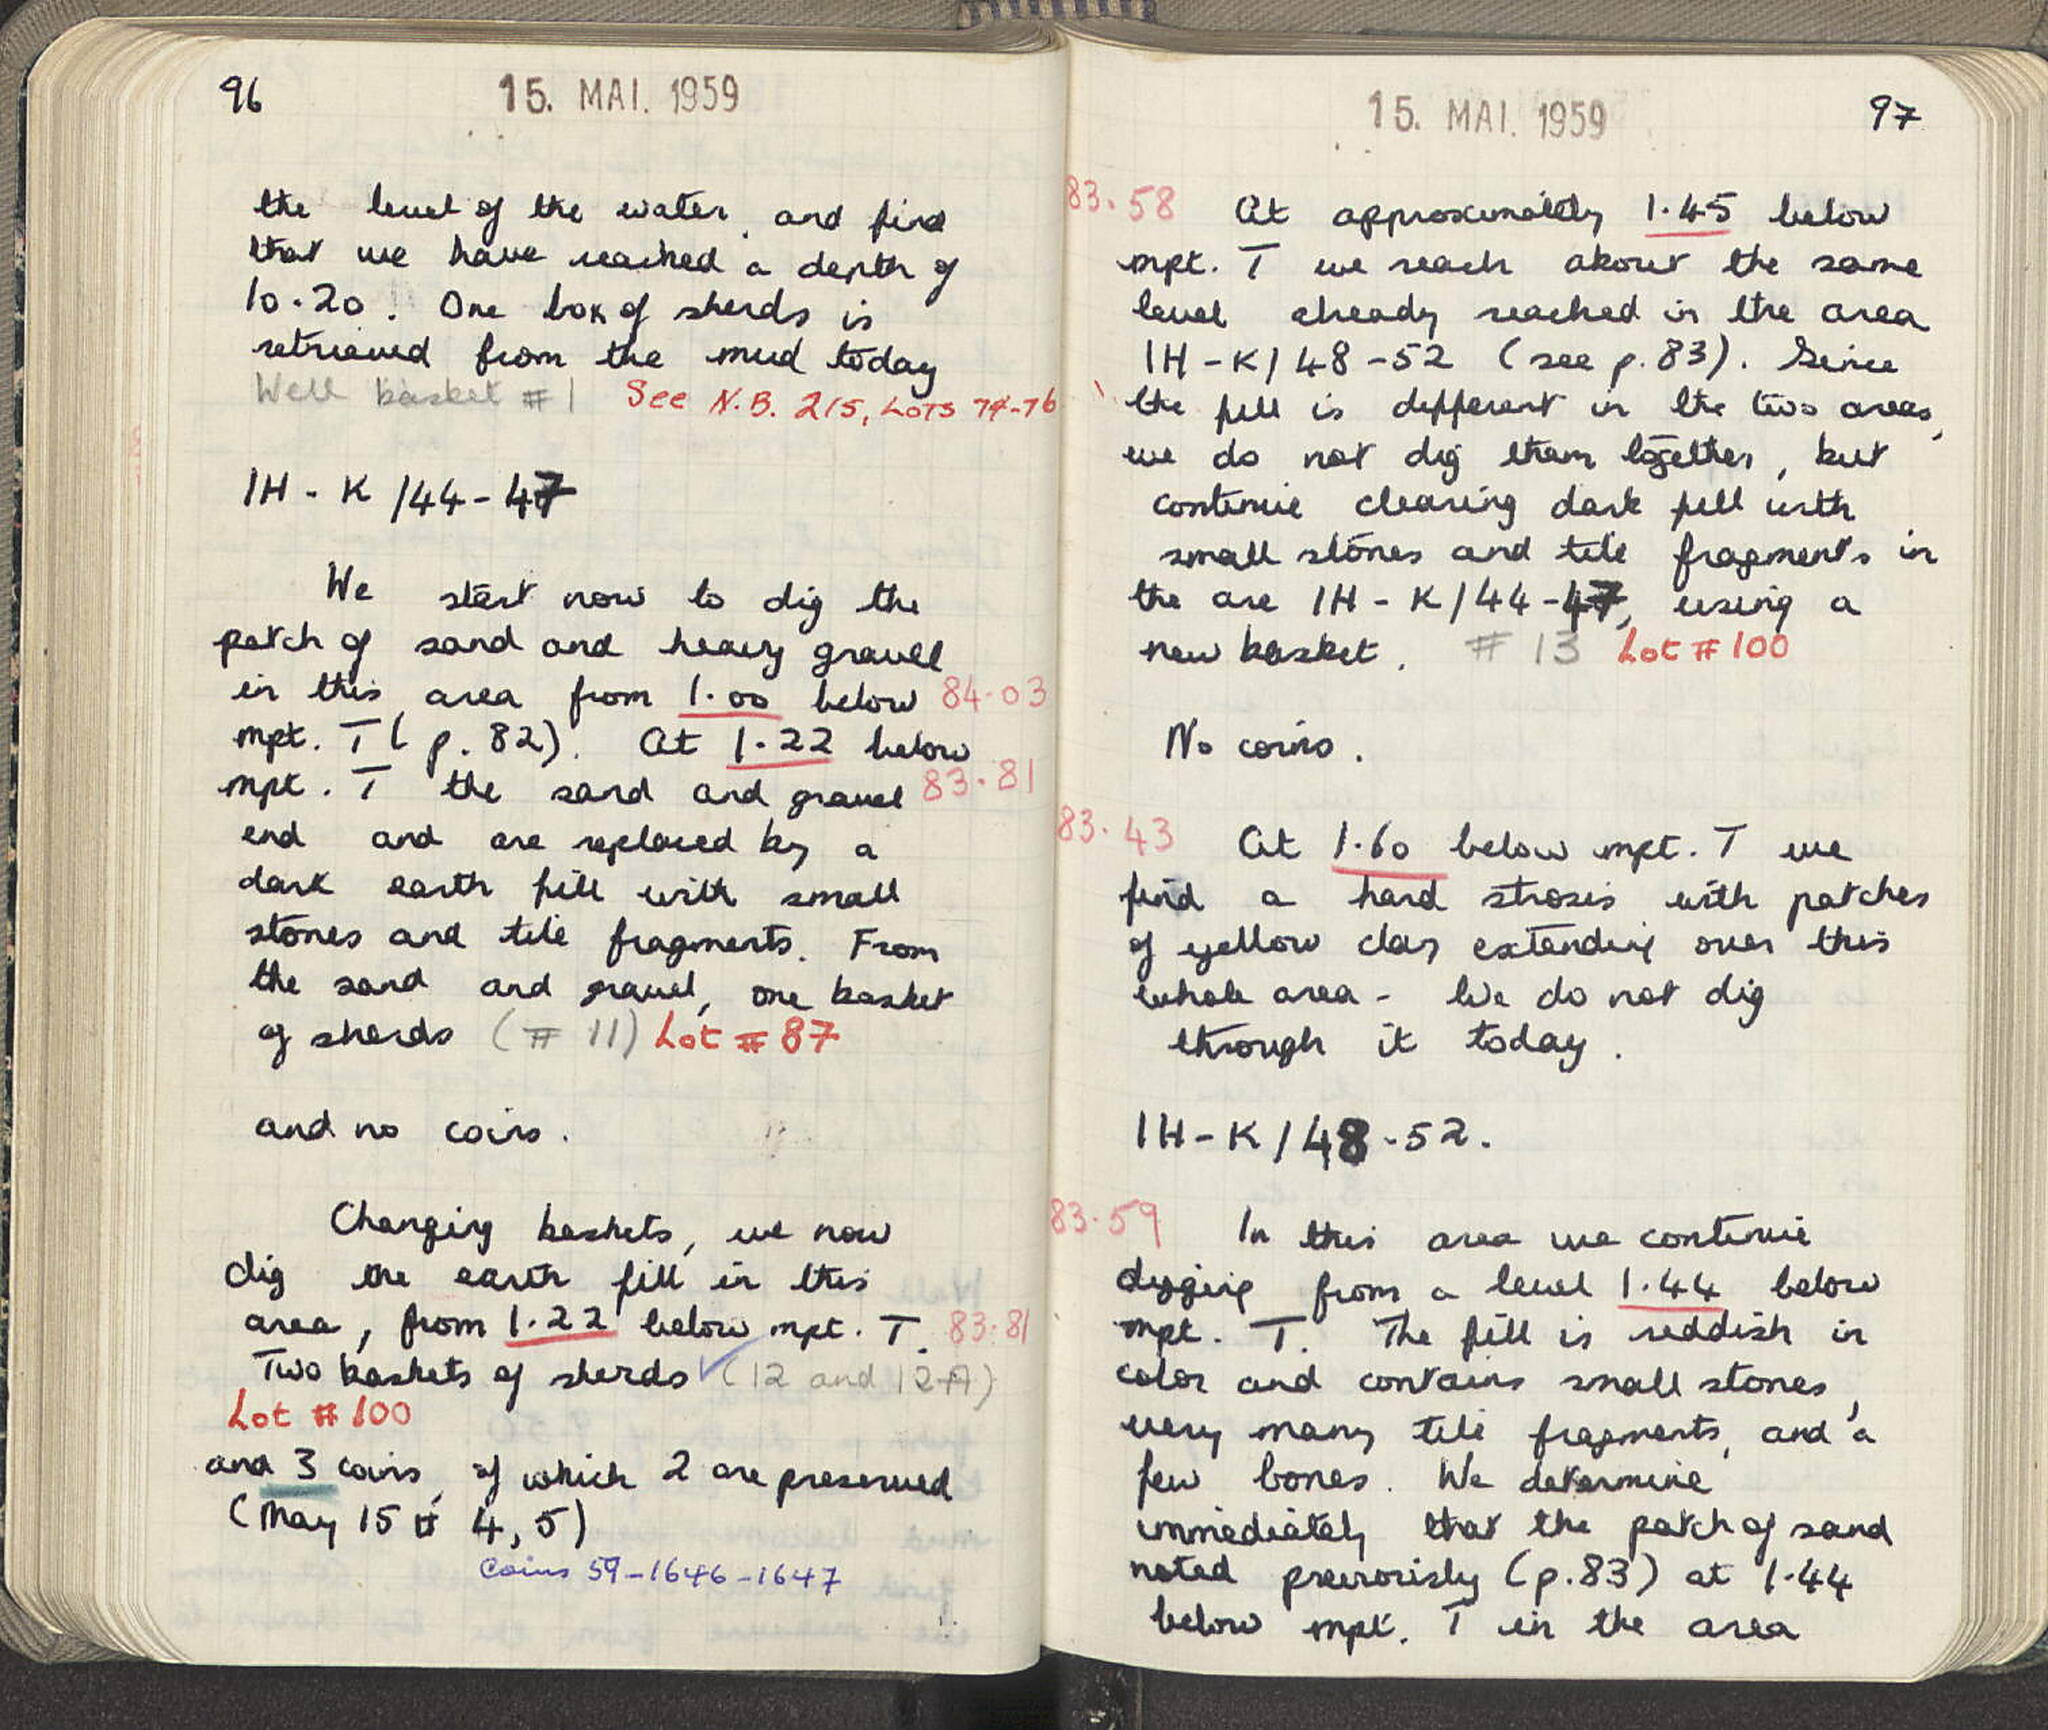 96
15. MAI. 1959
the level of the water, and find
that we have reached a depth of
10.20. One box of sherds is
retrieved from the mud today
Well basket #1 See N.B. 215, LOTS 74-76
1H - K /44-47
We start now to dig the
patch of sand and heavy gravel
in this area from 1.00 below 84.03
mpt. T ( p. 82). At 1.22 below
mpt. T the sand and gravel 83.81
end and are replaced by a
dark earth fill with small
stones and tile fragments. From
the sand and gravel, one basket
of sherds (# 11) Lot # 87
and no coins.
Changing baskets, we now
dig the earth fill in this
area, from 1.22 below mpt. T. 83.81
Two baskets of sherds (12 and 12A)
Lot # 100
and 3 coins, of which 2 are preserved
(May 15 # 4, 5)
Coins 59-1646-1647
15. MAI. 1959
97
83.58 At approximately 1.45 below
mpt. T we reach about the same
level already reached in the area
1H - K / 48 - 52 (see p. 83). Since
the fill is different in the two areas,
we do not dig them together, but
continue clearing dark fill with
small stones and tile fragments in
the are 1H - K / 44-47, using a
new basket. # 13 Lot # 100
No coins.
83.43 At 1.60 below mpt. T we
find a hard strosis with patches
of yellow clay extending over this
whole area - We do not dig
through it today.
1H - K / 48 - 52.
83.59 In this area we continue
digging from a level 1.44 below
mpt. T. The fill is reddish in
color and contains small stones,
very many tile fragments, and a
few bones. We determine
immediately that the patch of sand
noted previously (p.83) at 1.44
below mpt. T in the area